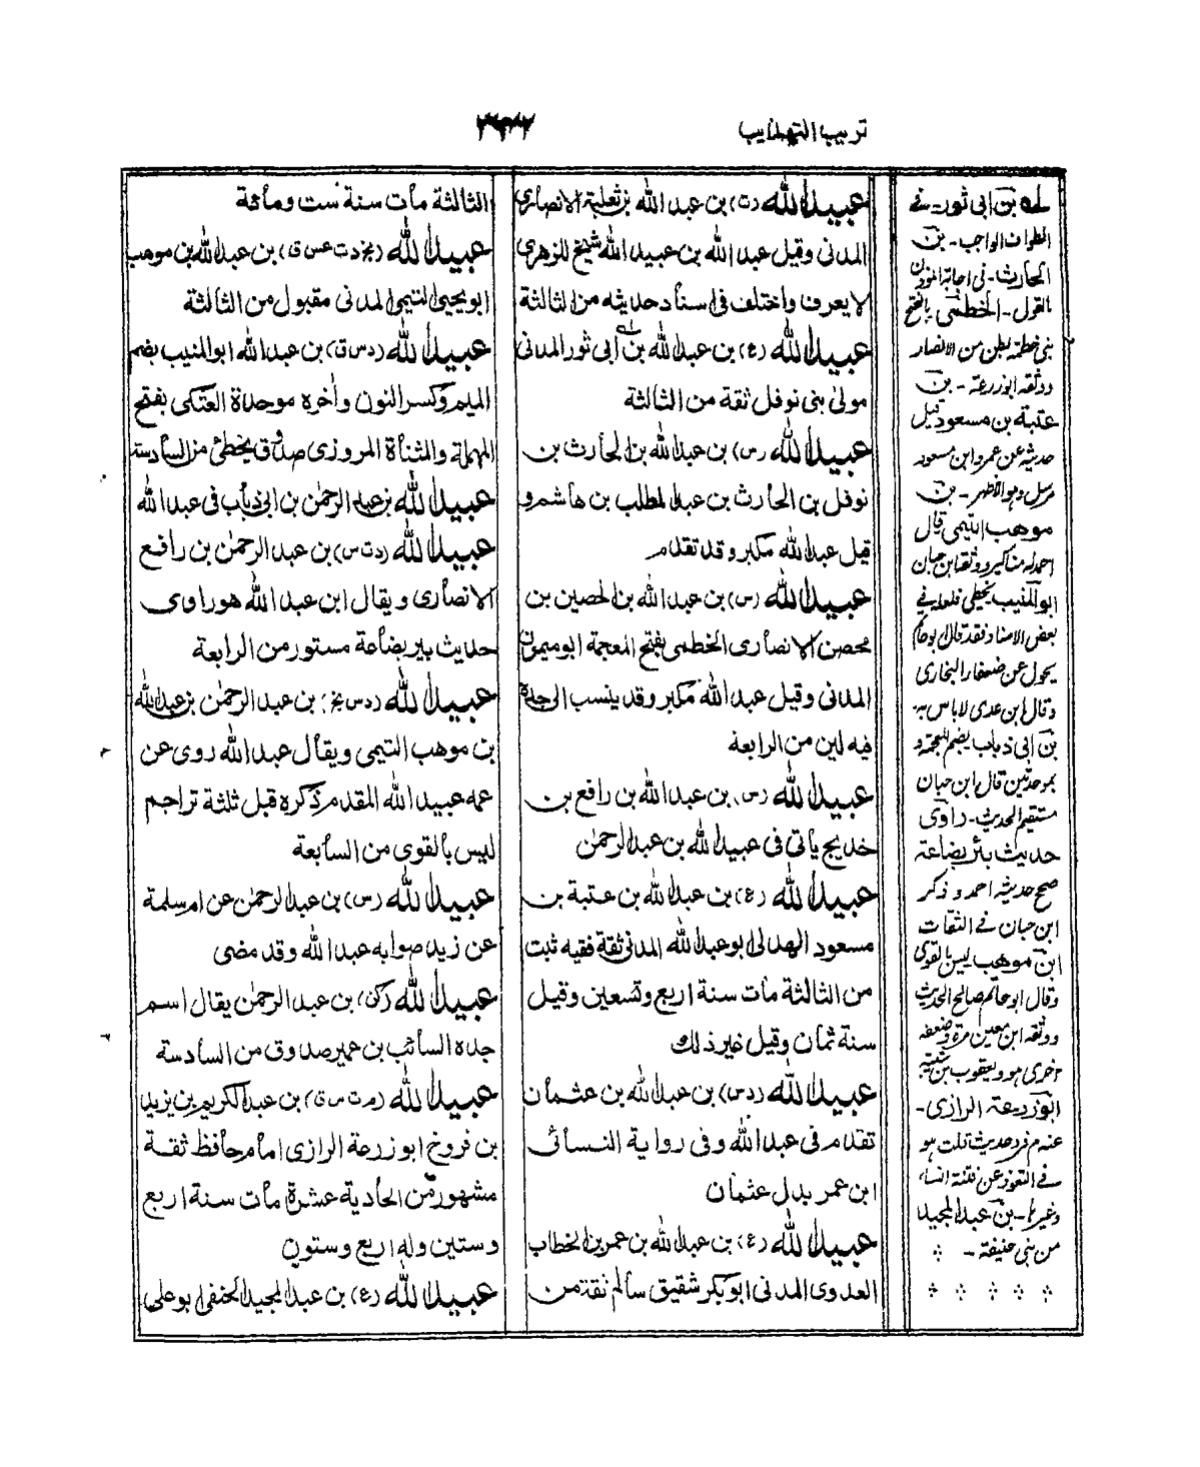 تريب التهذيب
عبيد الله (ت) بن عبد الله بن ثعلبة الانصاري
المدنى وقيل عبد الله بن عبيد الله شيخ للزهري
لا يعرف واختلف فى اسناد حديثه من الثالثة
عبيد الله (ع) بن عبد الله بن ابى ثور المدنى
مولى بنى نوفل ثقة من الثالثة
عبيد الله (س) بن عبد الله بن الحارث بن
نوفل بن الحارث بن عبد المطلب بن هاشم و
قيل عبد الله مكبر وقد تقدم
عبيد الله (س) بن عبد الله بن الحصين بن
محصن الانصارى الخطمى بفتح المعجمة ابو ميمون
المدنى وقيل عبد الله مكبر وقد ينسب الى جده
فيه لين من الرابعة
عبيد الله (س) بن عبد الله بن رافع بن
خديج ياتى فى عبيد الله بن عبد الرحمن
عبيد الله (ع) بن عبد الله بن عتبة بن
مسعود الهذلى ابو عبد الله المدنى ثقة فقيه ثبت
من الثالثة مات سنة اربع وتسعين وقيل
سنة ثمان وقيل غير ذلك
عبيد الله (دس) بن عبد الله بن عثمان
تقدم فى عبد الله وفى رواية النسائى
ابن عمر بدل عثمان
عبيد الله (ع) بن عبد الله بن عمر بن الخطاب
العدوى المدنى ابو بكر شقيق سالم ثقة من
الثالثة مات سنة ست ومائة
عبيد الله (بخ دت عس ق) بن عبد الله بن موهب
ابو يحيى التيمى المدنى مقبول من الثالثة
عبيد الله (دس ق) بن عبد الله ابو المنيب بضم
الميم وكسر النون واخره موحدة العتكى بفتح
المهملة والمثناة المروزى صدوق يخطئ من السادسة
عبيد الله بن عبد الرحمن بن ابى ذباب فى عبد الله
عبيد الله (دت س) بن عبد الرحمن بن رافع
الانصارى ويقال ابن عبد الله هو راوى
حديث بير بضاعة مستور من الرابعة
عبيد الله (دس بخ) بن عبد الرحمن بن عبد الله
بن موهب التيمى ويقال عبد الله روى عن
عمه عبيد الله المقدم ذكره قبل ثلثة تراجم
ليس بالقوى من السابعة
عبيد الله (س) بن عبد الرحمن عن ام سلمة
عن زيد صوابه عبد الله وقد مضى
عبيد الله (كن) بن عبد الرحمن يقال اسم
جده السائب بن عمير صدوق من السادسة
عبيد الله (مت س ق) بن عبد الكريم بن يزيد
بن فروخ ابو زرعة الرازى امام حافظ ثقة
مشهور من الحادية عشرة مات سنة اربع
وستين وله اربع وستون
عبيد الله (ع) بن عبد المجيد الحنفى ابو على
له بن ابى ثور - فى
الطواف الواجب - بن
الحارث - فى اجابة المؤذن
القول - الخطمى بالفتح
بنى خطمة بطن من الانصار
ووثقه ابو زرعة - بن
عتبة بن مسعود قيل
حديثه عن عمر وابن مسعود
مرسل وهو الاظهر - بن
موهب التيمى قال
احمد له مناكير ووثقه ابن حبان
ابو المنيب يخطى فلعله فى
بعض الاسناد فقد قال ابو حاتم
يحول عن ضعفاء البخارى
وقال ابن عدى لا باس به
بن ابى ذباب بضم المعجمة و
بموحدتين قال ابن حبان
مستقيم الحديث - راوى
حديث بئر بضاعة
صحح حديثه احمد وذكر
ابن حبان فى الثقات
ابن موهب ليس بالقوى
وقال ابو حاتم صالح الحديث
ووثقه ابن معين مرة وضعفه
اخرى هو ويعقوب بن شيبة
ابو زرعة الرازى -
عند م فرد حديث قلت هو
فى التعوذ عن فتنة النساء
وغيرها - بن عبد المجيد
من بنى حنيفة -